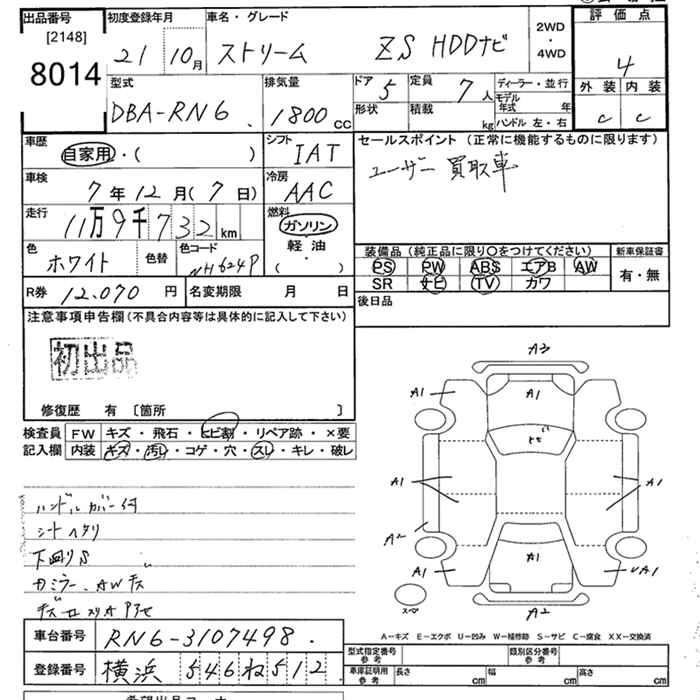 出品番号 初度登録年月 車名・グレード 2WD ・ 4WD 評価点
[2148]
8014 21 10月 ストリーム ZS HDDナビ 4
型式 排気量 ドア 定員 ディーラー・並行 外装 内装
DBA-RN6 1800cc 5 7人 モデル年式 年 c c
形状 積載 kg ハンドル 左・右
車歴 シフト セールスポイント (正常に機能するものに限ります)
自家用・( ) IAT ユーザー買取車
車検 冷房
7年12月(7日) AAC
走行 燃料
11万9千732km ガソリン
色 色替 色コード 軽油・ 装備品 (純正品に限り〇をつけてください) 新車保証書
ホワイト NH624P ( ) PS PW ABS エアB AW 有・無
SR ナビ TV カワ
R券 12.070円 名変期限 月 日 後日品
注意事項申告欄(不具合内容等は具体的に記入して下さい)
初出品
修復歴 有 〔箇所 〕
検査員 FW キズ・飛石・ヒビ割・リペア跡・×要
記入欄 内装 キズ・汚レ・コゲ・穴・スレ・キレ・破レ
A3
A1 A1 A1
トビ
A1 A1
A2
A1 A1 UA1
スペ A2
ハンドルカバー付
シートヘタリ
下廻りS
カミラー、AWキズ
A-キズ E-エクボ U-凹み W-補修跡 S-サビ C-腐食 XX-交換済
車台番号 RN6-3107498.
登録番号 横浜 546ね512
型式指定番号 参考 類別区分番号 参考
車庫証明用 参考 長さ cm 幅 cm 高さ cm